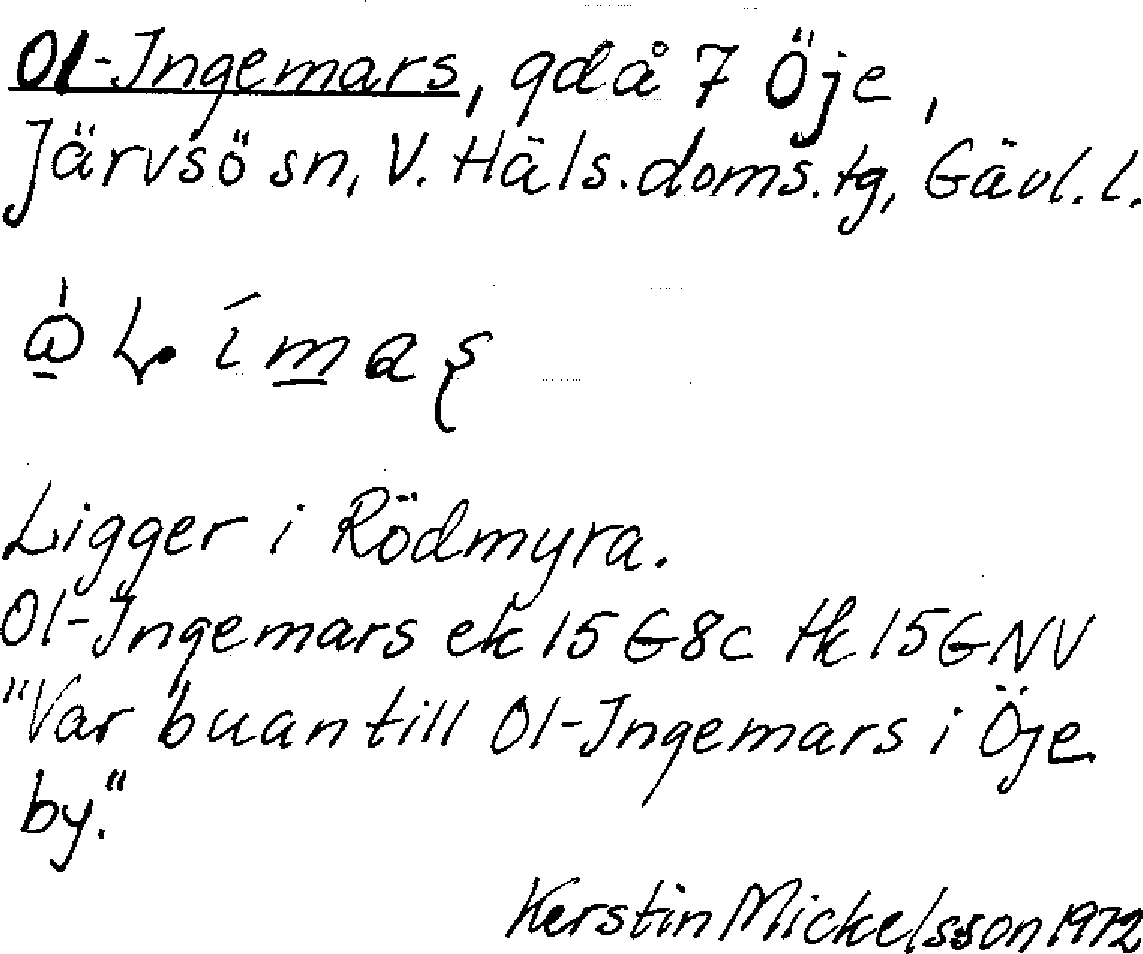 Ol-Ingemars, gdå 7 Öje,
Järvsö sn, V. Häls. doms. tg, Gävl. l.
Ligger i Rödmyra.
Ol-Ingemars ek 15 G 8c tk 15 G NV
"Var buan till Ol-Ingemars i Öje
by."
Kerstin Mickelsson 1972